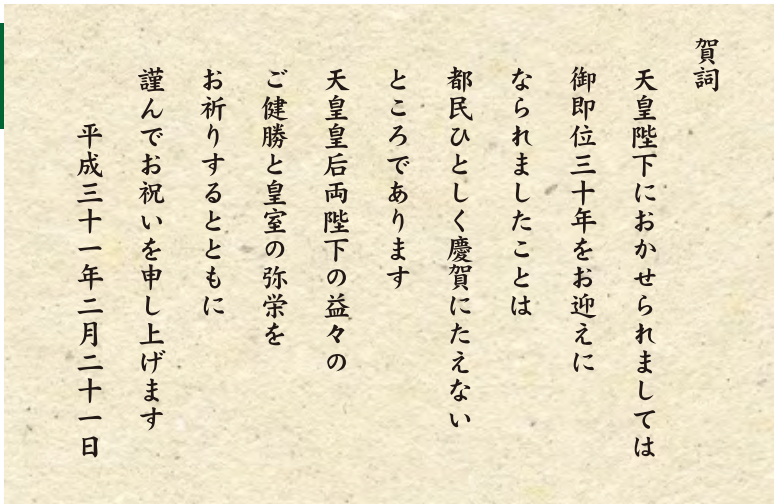 賀詞
天皇陛下におかせられましては
御即位三十年をお迎えに
なられましたことは
都民ひとしく慶賀にたえない
ところであります
天皇皇后両陛下の益々の
ご健勝と皇室の弥栄を
お祈りするとともに
謹んでお祝いを申し上げます
平成三十一年二月二十一日